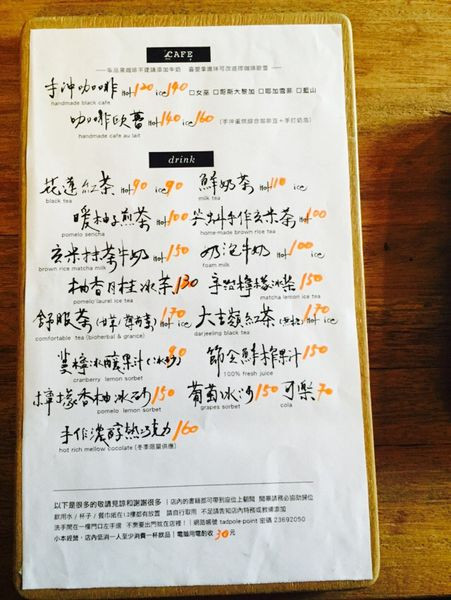 CAFE
單品黑咖啡不建議添加牛奶 喜愛拿鐵味可改選擇咖啡歐蕾
手沖咖啡 Hot 120 ice 140 □女巫 □哥斯大黎加 □耶加雪菲 □藍山
handmade black cafe
咖啡欧蕾 Hot 140 ice 160 (手沖蛋糕綜合咖啡豆+手打奶泡)
handmade cafe au lait
drink
花蓮紅茶 Hot 90 ice 90 鮮奶茶 Hot 110 ice
black tea milk tea
暖柚子煎茶 Hot 100 手作玄米茶 Hot 100
pomelo sencha home-made brown rice tea
玄米抹茶牛奶 Hot 150 奶泡牛奶 Hot 100 ice
brown rice matcha milk foam milk
柚香月桂冰茶 130 檸檬冰茶 150
pomelo laurel ice tea matcha lemon ice tea
舒服茶 Hot 170 ice 大吉嶺紅茶 Hot 170 ice
comfortable tea (bioherbal & grance) darjeeling black tea
蔓檸冰釀果汁 (冰砂) 90 節令鮮榨果汁 150
cranberry lemon sorbet 100% fresh juice
檸檬香柚冰砂 150 葡萄冰沙 150 可樂 70
pomelo lemon sorbet grapes sorbet cola
手作濃醇熱巧克力 160
hot rich mellow cocolate (冬季限量供應)
以下是很多的敬請見諒和謝謝很多 | 店內的書籍都可帶到座位上翻閱 閱畢請務必協助歸位
飲用水 / 杯子 / 餐巾紙在12櫃都有放置 請自行取用 不足請告知店內特務或教練添加
洗手間在一樓門口左手邊 不需要出門就在店裡! | 網路帳號 tadpole-point 密碼 23692050
小本經營,店內低消一人至少消費一杯飲品 | 電腦用電酌收 30 元